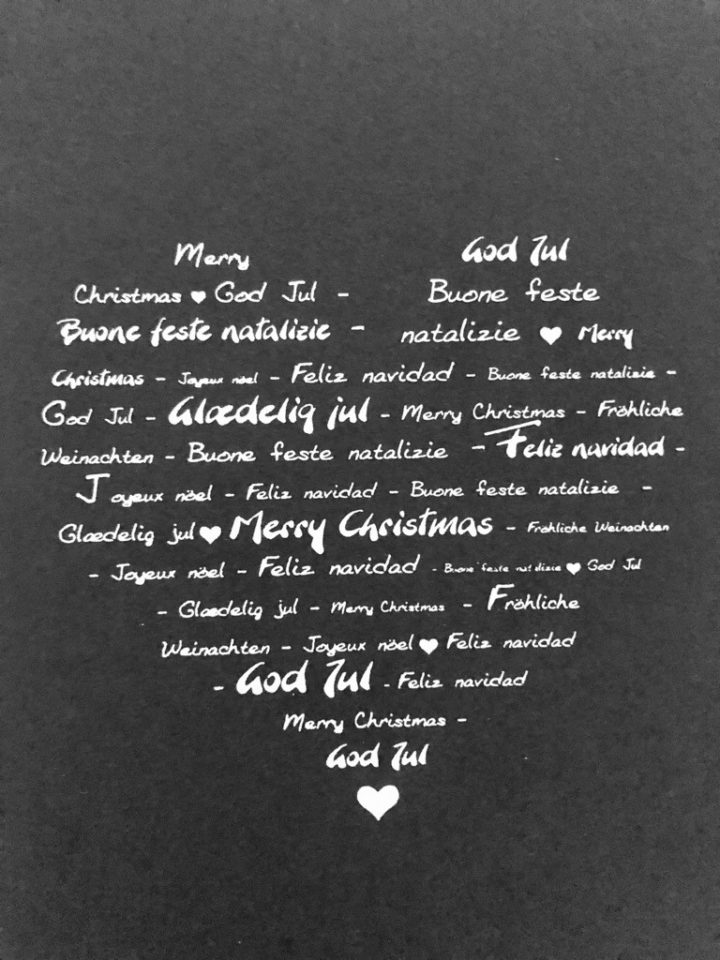 Merry God Jul
Christmas ♥ God Jul - Buone feste
Buone feste natalizie - natalizie ♥ Merry
Christmas - Joyeux nöel - Feliz navidad - Buone feste natalizie -
God Jul - Glædelig jul - Merry Christmas - Fröhliche
Weinachten - Buone feste natalizie - Feliz navidad -
Joyeux nöel - Feliz navidad - Buone feste natalizie -
Glædelig jul ♥ Merry Christmas - Fröhliche Weinachten
- Joyeux nöel - Feliz navidad - Buone feste natalizie ♥ God Jul
- Glædelig jul - Merry Christmas - Fröhliche
Weinachten - Joyeux nöel ♥ Feliz navidad
- God Jul - Feliz navidad
Merry Christmas -
God Jul
♥